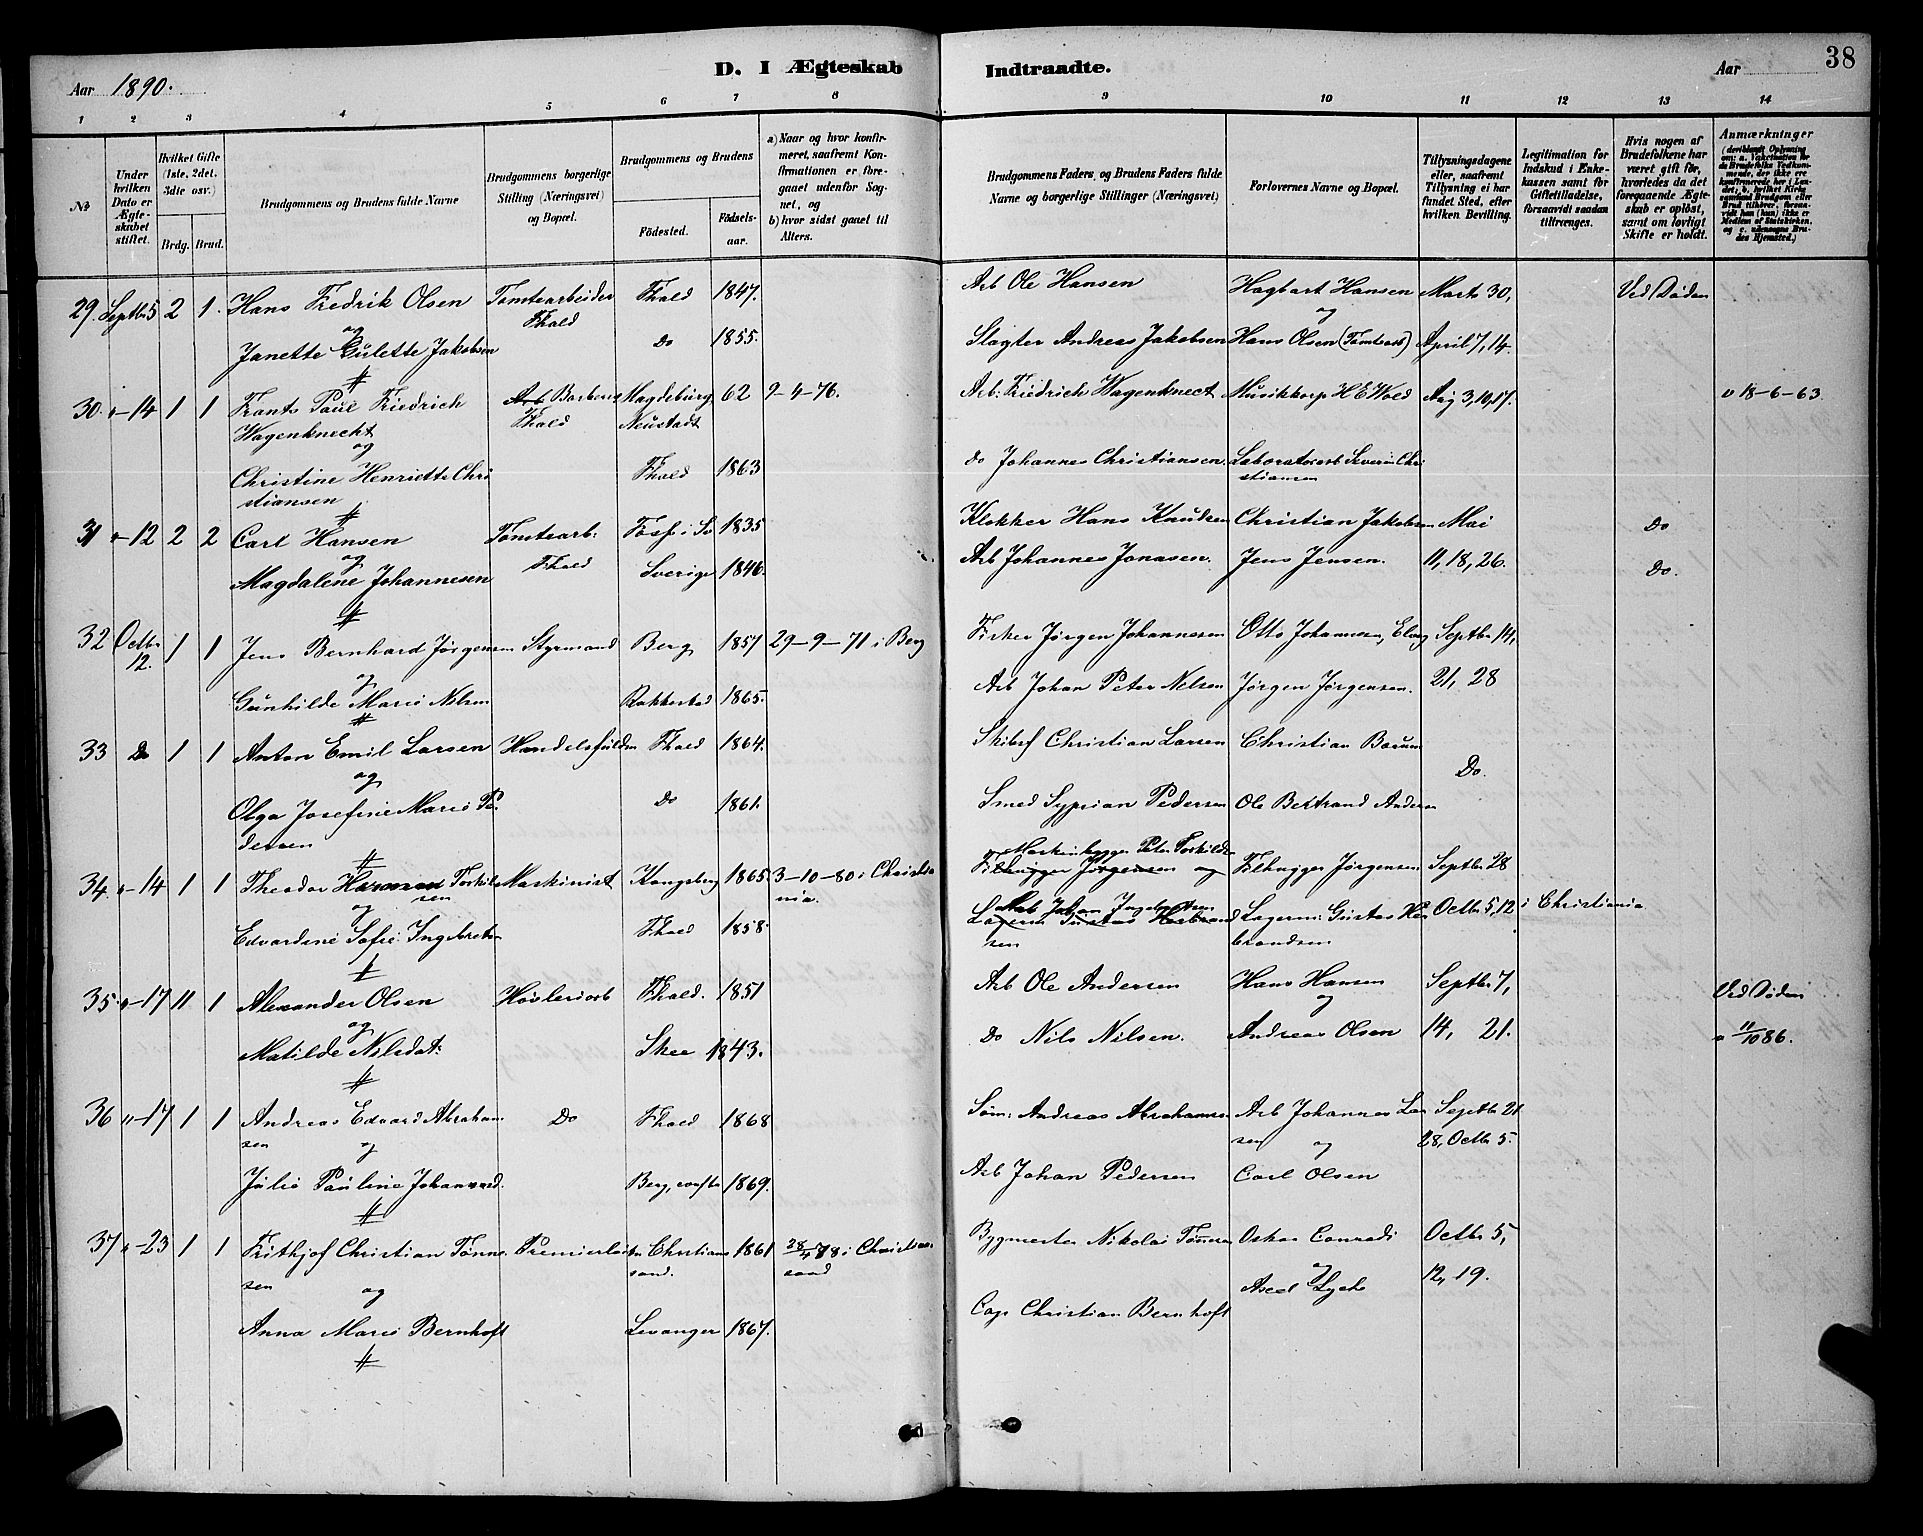 Aar 1890.
D. I Ægteskab
Indtraadte.
Aar
38
1 2 3 4 5 6 7 8 9 10 11 12 13 14
No
Under hvilken Dato er Ægteskabet stiftet.
Hvilket Gifte (1ste, 2det, 3die osv.)
Brdg. Brud.
Brudgommens og Brudens fulde Navne
Brudgommens borgerlige Stilling (Næringsvei) og Bopæl.
Brudgommens og Brudens
Fødested.
Fødselsaar.
a) Naar og hvor konfirmeret, saafremt Konfirmationen er foregaaet udenfor Sognet, og
b) hvor sidst gaaet til Alters.
Brudgommens Faders, og Brudens Faders fulde Navne og borgerlige Stillinger (Næringsvei)
Forlovernes Navne og Bopæl.
Tillysningsdagene eller, saafremt Tillysning ei har fundet Sted, efter hvilken Bevilling.
Legitimation for Indskud i Enkekassen samt for Giftetilladelse, forsaavidt saadan tiltrænges.
Hvis nogen af Brudefolkene har været gift før, hvorledes da det foregaaende Ægteskab er opløst, samt om lovligt Skifte er holdt.
Anmærkninger
29. Septbr 5 2 1. Hans Fredrik Olsen Tomtearbeider Fhald 1847. Arb Ole Hansen Hagbart Hansen Marts 30, Ved Døden
og Fhald og
Janette Gulette Jakobsen Do 1855. Slagter Andreas Jakobsen Hans Olsen (Tomtearb) April 7, 14.
30. " - 14 1 1 Frants Paul Friedrich Arb Barberer Magdeburg 62 9-4-76. Arb: Friedrich Wagenknect Musikkorp H E Wold Aug 3, 10, 17. v 18-6-63.
Wagenknecht Fhald Neustadt
og
Christine Henriette Chri Fhald 1863 Do Johannes Christiansen Laboratorarb Severin Chri
stiansen stiansen
31 " - 12 2 2 Carl Hansen Tomtearb: Foss i Sv 1835 Klokker Hans Knudsen Christian Jakobsen Mai Do
og Fhald
Magdalene Johannesen Sverige 1846. Arb Johannes Jonasen. Jens Jensen. 11, 18, 26. Do.
32 Octbr 12. 1 1 Jens Bernhard Jørgensen Styrmand Berg 1857 29-9-71 i Berg Fisker Jørgen Johannesen Otto Johannsen, Septbr 14,
og
Gunhilde Marie Nilsen Rakkestad 1865. Arb Johan Peter Nelsen Jørgen Jørgensen. 21, 28
33 Do 1 1 Anton Emil Larsen Fhald 1864. Skibsf Christian Larsen Christian Borum
og Do.
Olga Josefine Marie Pe Do 1861. Smed Syprian Pedersen Ole Bertrand Andersen
dersen
Maskinbygger Peter Torkilds
34. " - 14 1 1 Theodor Herman Torkil Maskinist Kongsberg 1865 3-10-80 i Christia Filhugger Jørgensen og Filhugger Jørgensen Septbr 28
sen nia.
og Arb Johan Ingebretsen
Edvardine Sofie Ingebrets Fhald 1858. Lagerm Gustav Herbrand Lagerm: Gustav Her Octbr 5, 12 i Christiania
sen brandsen
35 " - 17 11 1 Alexander Olsen Høvleriarb Fhald. 1851 Arb Ole Andersen Hans Hansen Septbr 7, Ved Døden
og og
Matilde Nilsdat: Skee 1843. Do Nils Nilsen. Andreas Olsen 14, 21. 11/10 86.
36 " - 17 1 1 Andreas Edvard Abraham Do Fhald 1868 Søm: Andreas Abrahamsen Arb Johannes Lar Septbr 21
sen og sen og 28, Octbr 5.
Julie Pauline Johannesd. Berg, 1869. Arb Johan Pedersen Carl Olsen
37 " - 23 1 1 Frithjof Christian Tønne Premierløitn Christian 1861 28/4 78 i Christian Bygmester Nikolai Tønnesen Oskar Conradi Octbr 5,
sen sand. sand
og og 12, 19.
Axel Lycke
Anna Marie Bernhoft Levanger 1867. Cap Christian Bernhoft